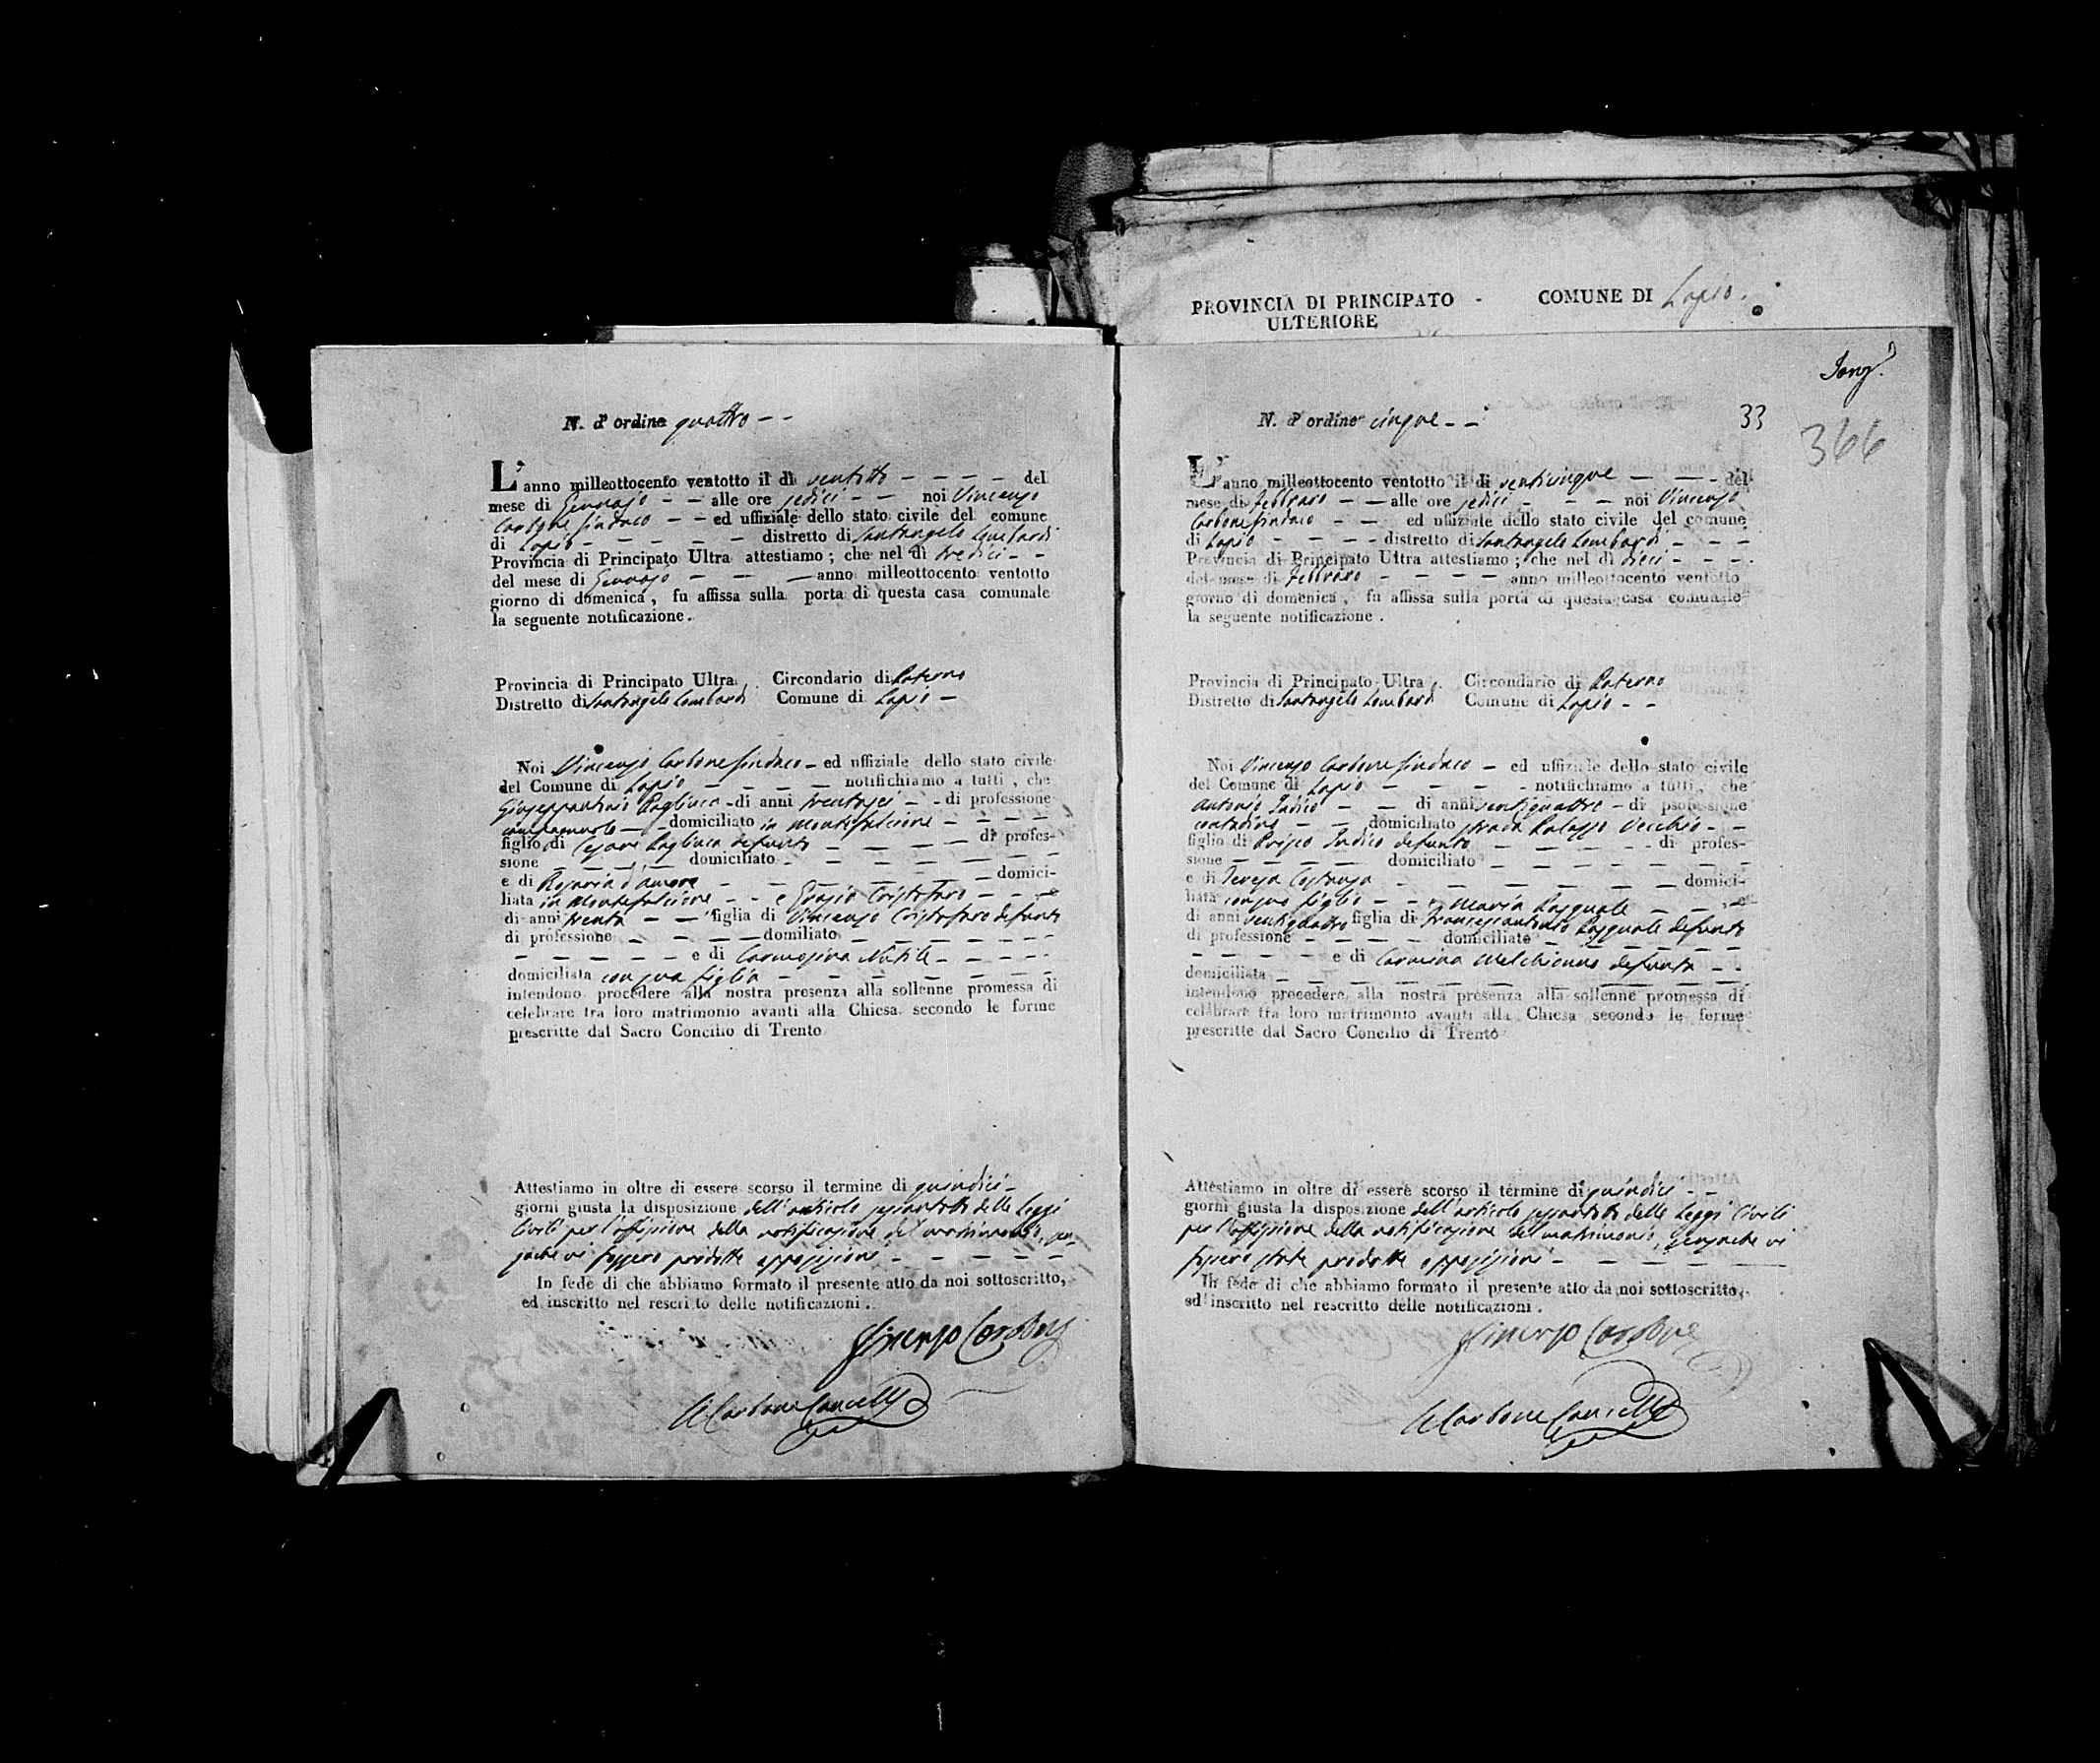 N. d' ordine quattro - -
L' anno milleottocento ventotto il dì ventotto - - - - del
mese di Gennajo - - alle ore sedici - - noi Vincenzo
Carbone Sindaco - - ed uffiziale dello stato civile del comune
di Lapio - - - - - distretto di Santangelo Lombardi
Provincia di Principato Ultra attestiamo ; che nel dì tredici - -
del mese di Gennajo - - - anno milleottocento ventotto
giorno di domenica , fu affissa sulla porta di questa casa comunale
la seguente notificazione .
Provincia di Principato Ultra Circondario di Paterno
Distretto di Santangelo Lombardi Comune di Lapio -
Noi Vincenzo Carbone Sindaco - ed uffiziale dello stato civile
del Comune di Lapio - - - - notifichiamo a tutti , che
Giuseppantonio Pagliuca - di anni trentasei - - di professione
campagnuolo - - domiciliato in Montefalcione - - - -
figlio di Cesare Pagliuca defunto - - - - - di profes-
sione - - - - domiciliato - - - - - - -
e di Rosaria d'amore - - - - - - - domici-
liata in Montefalcione - - e Grazia Cristofaro - - - e
di anni trenta - - figlia di Vincenzo Cristofaro defunto
di professione - - - - domiliato - - - - - -
- - - - - e di Carmosina Nutile - - - - -
domiciliata con sua figlia - - - - - - -
intendono procedere alla nostra presenza alla sollenne promessa di
celebrare tra loro matrimonio avanti alla Chiesa secondo le forme
prescritte dal Sacro Concilio di Trento
Attestiamo in oltre di essere scorso il termine di quindici -
giorni giusta la disposizione dell'articolo sessantotto delle Leggi
Civili per l'affissione della notificazione del matrimonio, sen-
zache vi fossero prodotte opposizioni - - - - - -
In fede di che abbiamo formato il presente atto da noi sottoscritto,
ed inscritto nel rescritto delle notificazioni .
Vincenzo Carbone
Carbone Cancell
PROVINCIA DI PRINCIPATO - COMUNE DI Lapio .
ULTERIORE
33
366
N. d' ordine cinque - -
L' anno milleottocento ventotto il dì venticinque - - - del
mese di Febbraro - - alle ore sedici - - - noi Vincenzo
Carbone Sindaco - - - ed uffiziale dello stato civile del comune
di Lapio - - - - distretto di Santangelo Lombardi - - -
Provincia di Principato Ultra attestiamo ; che nel dì dieci - - - -
del mese di Febbraro - - - - - anno milleottocento ventotto
giorno di domenica , fu affissa sulla porta di questa casa comunale
la seguente notificazione .
Provincia di Principato Ultra Circondario di Paterno
Distretto di Santangelo Lombardi Comune di Lapio - -
Noi Vincenzo Carbone Sindaco - ed uffiziale dello stato civile
del Comune di Lapio - - - - - notifichiamo a tutti, che
Antonio Iudico - - di anni ventiquattro - di professione
contadino - - domiciliato strada Palazzo Vecchio - -
figlio di Prisco Iudico defunto - - - - - di profes-
sione - - - - - domiciliato - - - - - - -
e di Teresa Costanza - - - - - - - domici-
liata con suo figlio - - e Maria Pasquale - - - e
di anni ventiquattro figlia di Francescantonio Pasquale defunto
di professione - - - - domiciliato - - - - - -
- - - - - e di Carmina Melchionno defunta - -
domiciliata - - - - - - - - - -
intendono procedere alla nostra presenza alla sollenne promessa di
celebrare tra loro matrimonio avanti alla Chiesa secondo le forme
prescritte dal Sacro Concilio di Trento
Attestiamo in oltre di essere scorso il termine di quindici - -
giorni giusta la disposizione dell'articolo sessantotto delle Leggi Civili
per l'affissione della notificazione del matrimonio, senzache vi
fossero state prodotte opposizioni - - - - - -
In fede di che abbiamo formato il presente atto da noi sottoscritto,
ed inscritto nel rescritto delle notificazioni .
Vincenzo Carbone
Carbone Cancell